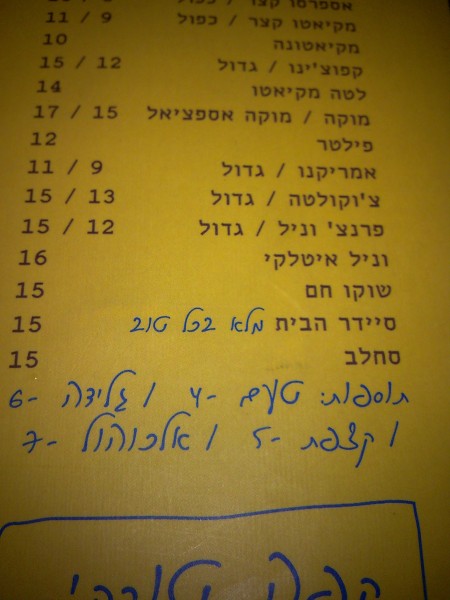 אספרסו קצר / כפול
מקיאטו קצר / כפול 9 / 11
מקיאטונה 10
קפוצ'ינו / גדול 12 / 15
לטה מקיאטו 14
מוקה / מוקה אספציאל 15 / 17
פילטר 12
אמריקנו / גדול 9 / 11
צ'וקולטה / גדול 13 / 15
פרנצ' וניל / גדול 12 / 15
וניל איטלקי 16
שוקו חם 15
סיידר הבית מלא בכל טוב 15
סחלב 15
תוספות: טעם -4 / גלידה -6
/ קצפת -5 / אלכוהול -7
קפה טורקי